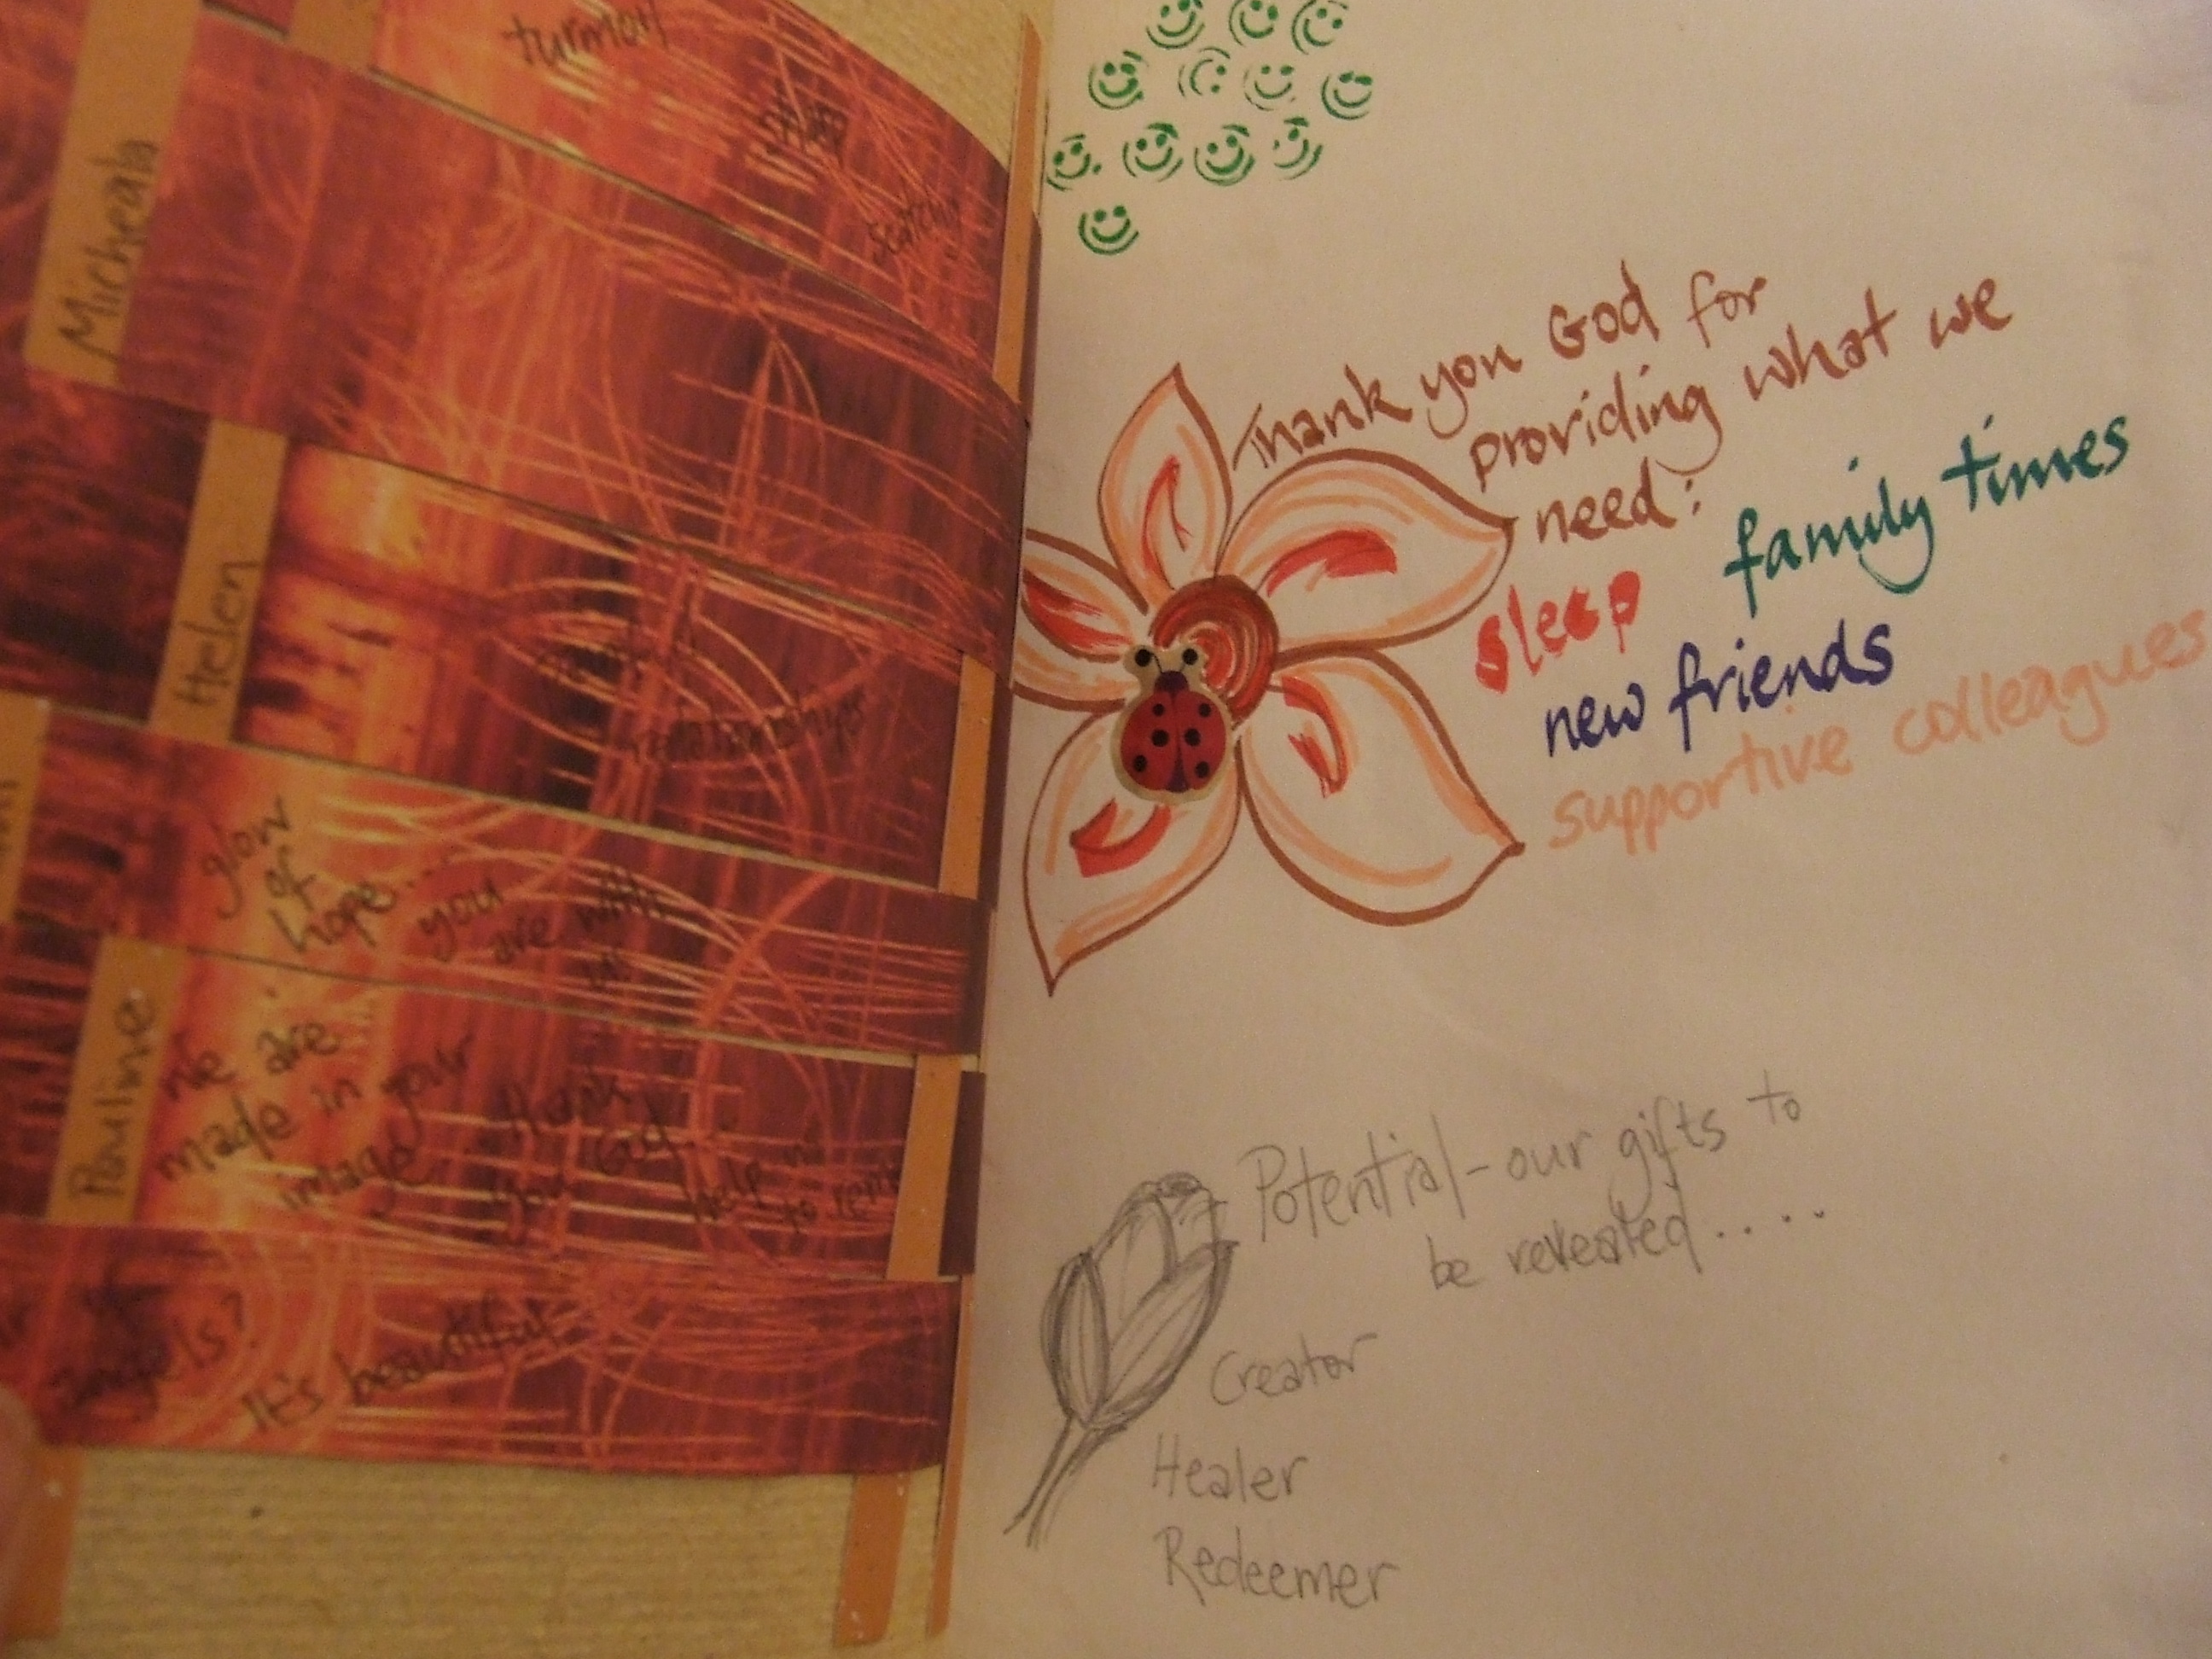 turmoil
sharp
scratchy
Micheala
Helen
relationships
glow
of
hope... you
are with
us
Pauline
We are
made in your
image... thank
you God...
Help us
to rem
angels?
It's beautiful
Thank you God for
providing what we
need:
sleep family times
new friends
supportive colleagues
Potential - our gifts to
be revealed.....
Creator
Healer
Redeemer